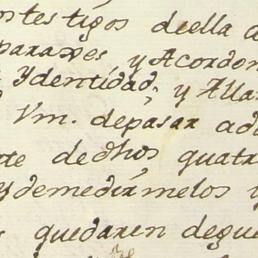 ntestigos deella a
parages y Acordon
Ydentidad, y Allan
Vm. depasar ad
te dedhos quatr
y demedirmelos y
quedaren degue